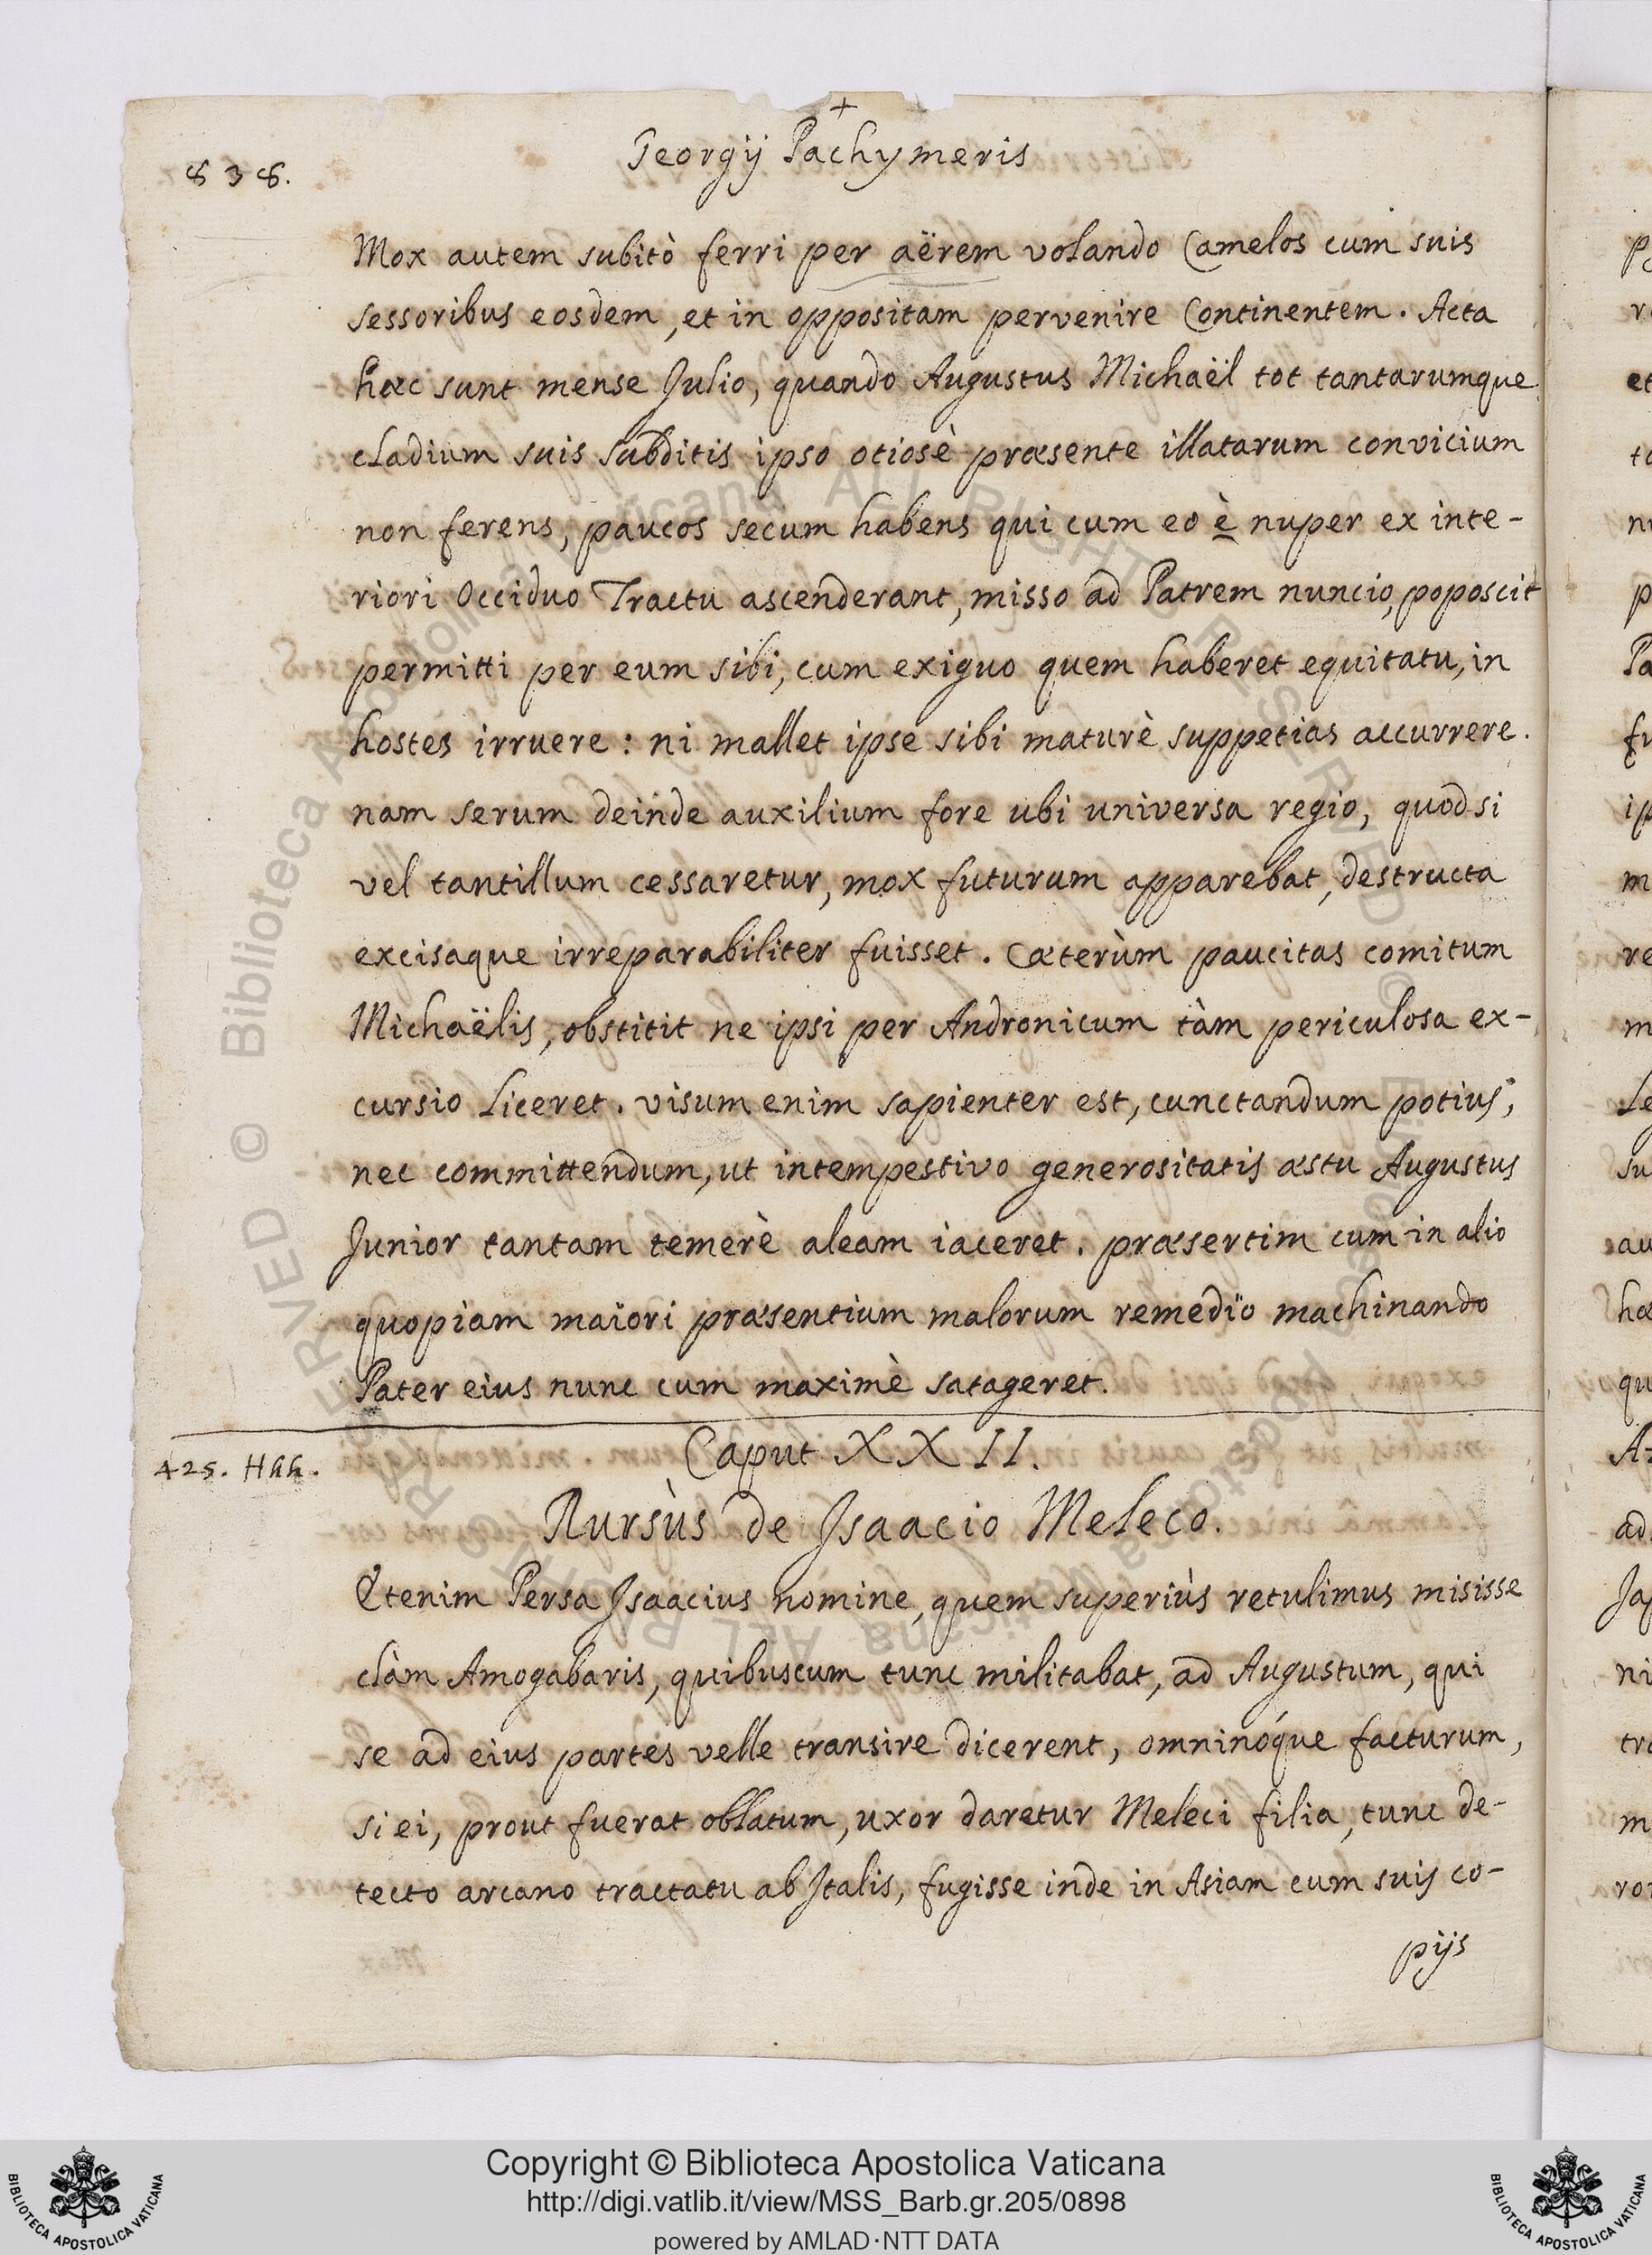 +
838.
Georgij Pachymeris
Mox autem subitò ferri per aërem volando Camelos cum suis
sessoribus eosdem, et in oppositam pervenire Continentem. Acta
hæc sunt mense Julio, quando Augustus Michaël tot tantarumque
cladium suis subditis ipso otiosè præsente illatarum convicium
non ferens, paucos secum habens qui cum eo è nuper ex inte-
riori Occiduo Tractu ascenderant, misso ad Patrem nuncio, poposcit
permitti per eum sibi, cum exiguo quem haberet equitatu, in
hostes irruere: ni mallet ipse sibi maturè suppetias accurrere.
nam serum deinde auxilium fore ubi universa regio, quod si
vel tantillum cessaretur, mox futurum apparebat, destructa
excisaque irreparabiliter fuisset. Cæterùm paucitas comitum
Michaëlis, obstitit ne ipsi per Andronicum tàm periculosa ex-
cursio liceret. visum enim sapienter est, cunctandum potius,
nec committendum, ut intempestivo generositatis æstu Augustus
Junior tantam temerè aleam iaceret. præsertim cum in alio
quopiam maiori præsentium malorum remedio machinando
Pater eius nunc cum maximè satageret.
425. Hhh.
Caput XXII.
Rursùs de Isaacio Meleco.
Etenim Persa Isaacius nomine, quem superiùs retulimus misisse
clàm Amogabaris, quibuscum tunc militabat, ad Augustum, qui
se ad eius partes velle transire dicerent, omninóque facturum,
si ei, prout fuerat oblatum, uxor daretur Meleci filia, tunc de-
tecto arcano tractatu ab Italis, fugisse inde in Asiam cum suis co-
pijs
Copyright © Biblioteca Apostolica Vaticana
http://digi.vatlib.it/view/MSS_Barb.gr.205/0898
powered by AMLAD·NTT DATA
BIBLIOTECA APOSTOLICA VATICANA
BIBLIOTECA APOSTOLICA VATICANA